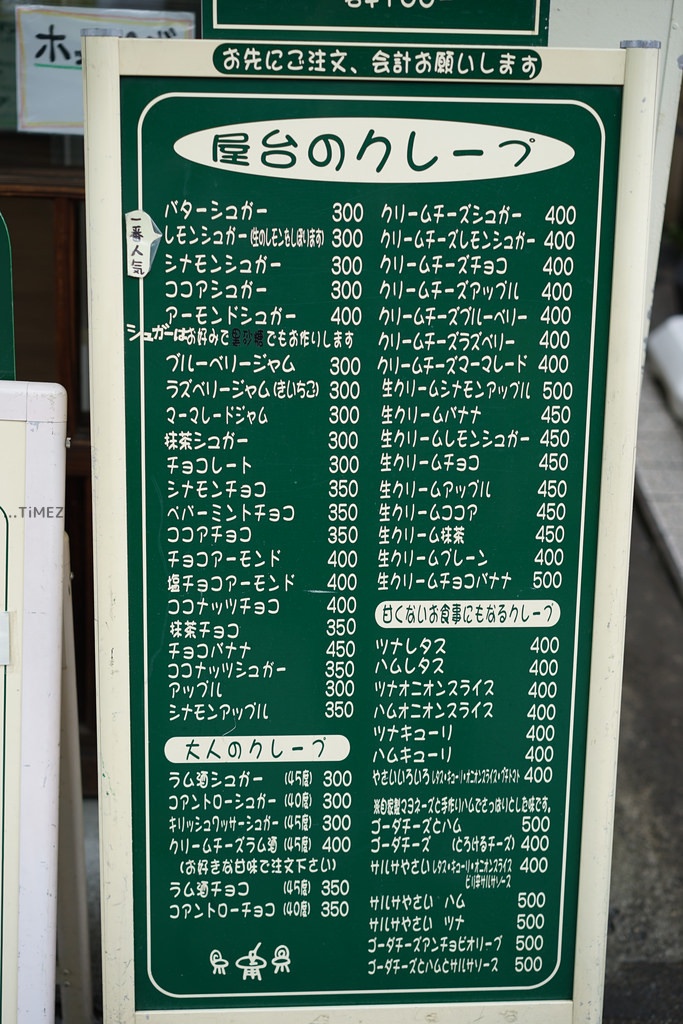 お先にご注文、会計お願いします
屋台のクレープ
一番人気
バターシュガー 300
レモンシュガー (生のレモンをしぼります) 300
シナモンシュガー 300
ココアシュガー 300
アーモンドシュガー 400
シュガーはお好みで黒砂糖でもお作りします
ブルーベリージャム 300
ラズベリージャム(きいちご) 300
マーマレードジャム 300
抹茶シュガー 300
チョコレート 300
シナモンチョコ 350
ペパーミントチョコ 350
ココアチョコ 350
チョコアーモンド 400
塩チョコアーモンド 400
ココナッツチョコ 400
抹茶チョコ 350
チョコバナナ 450
ココナッツシュガー 350
アップル 300
シナモンアップル 350
大人のクレープ
ラム酒シュガー (45度) 300
コアントローシュガー (40度) 300
キリッシュワッサーシュガー (45度) 300
クリームチーズラム酒 (45度) 400
(お好きな甘味で注文下さい)
ラム酒チョコ (45度) 350
コアントローチョコ (40度) 350
クリームチーズシュガー 400
クリームチーズレモンシュガー 400
クリームチーズチョコ 400
クリームチーズアップル 400
クリームチーズブルーベリー 400
クリームチーズラズベリー 400
クリームチーズマーマレード 400
生クリームシナモンアップル 500
生クリームバナナ 450
生クリームレモンシュガー 450
生クリームチョコ 450
生クリームアップル 450
生クリームココア 450
生クリーム抹茶 450
生クリームプレーン 400
生クリームチョコバナナ 500
甘くないお食事にもなるクレープ
ツナレタス 400
ハムレタス 400
ツナオニオンスライス 400
ハムオニオンスライス 400
ツナキューリ 400
ハムキューリ 400
やさいいろいろ レタス・キューリ・オニオンスライス・プチトマト 400
※自家製マヨネーズと手作りハムでさっぱりとした味です。
ゴーダチーズとハム 500
ゴーダチーズ (とろけるチーズ) 400
サルサやさい レタス・キューリ・オニオンスライス 400
ピリ辛サルサソース
サルサやさい ハム 500
サルサやさい ツナ 500
ゴーダチーズアンチョビオリーブ 500
ゴーダチーズとハムとサルサソース 500
..TiMEZ